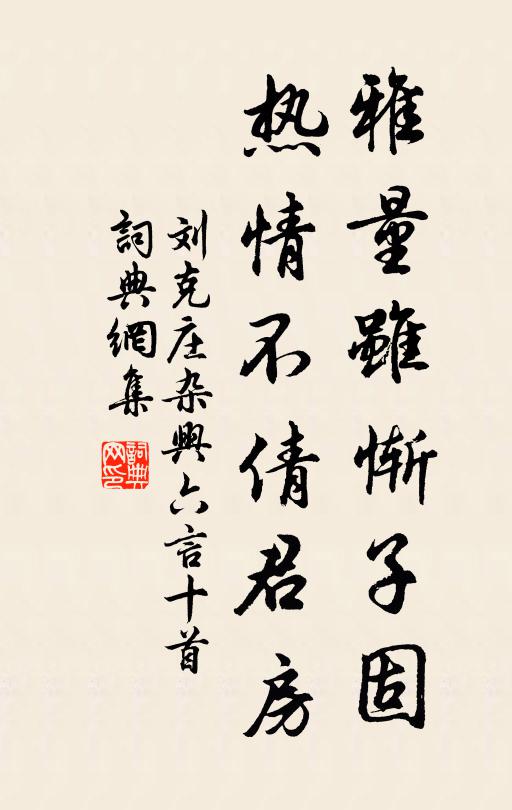 雅量雖惭子固
热情不倩君房
刘克庄杂興六言十首
詞典網集
詞典網印